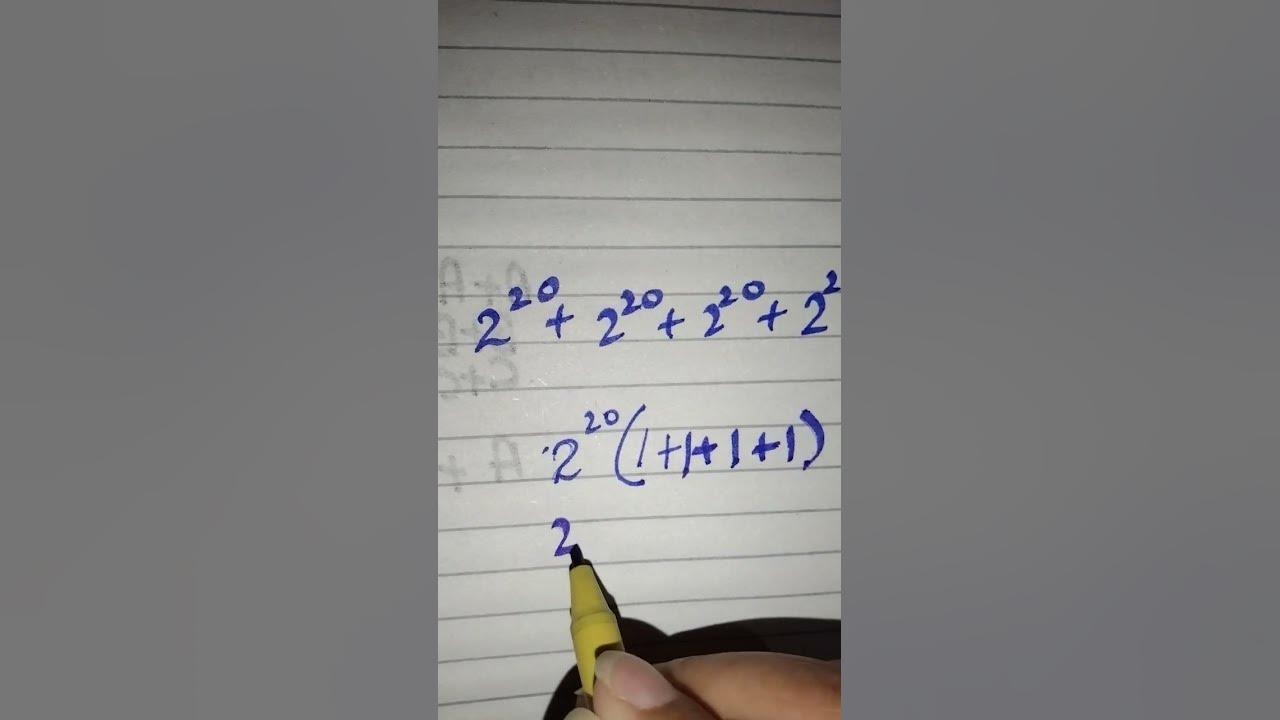 2²⁰ + 2²⁰ + 2²⁰ + 2²
2²⁰(1+1+1+1)
2